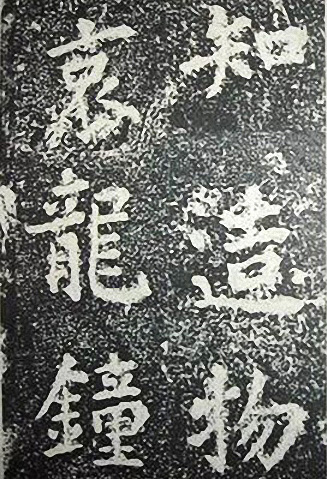 知造物
哀龍鐘